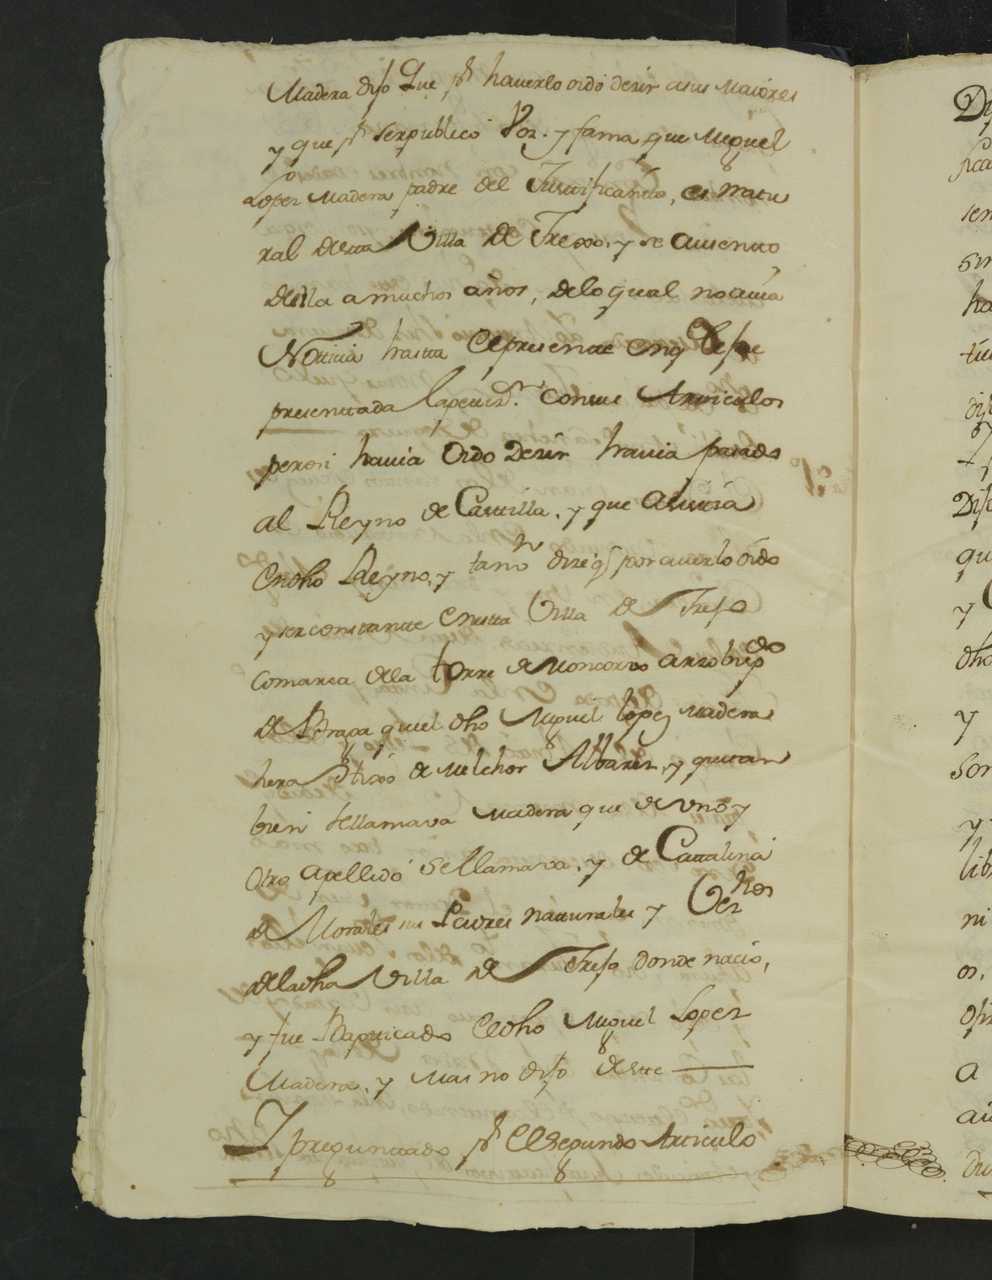 Madera dijo Que pr haverlo oido desir asus maiores
y que pr ser publico Voz. y fama que Miguel
Lopez Madera padre del Justificante, es natu
ral desta Villa de Frexo. y se ausento
della a muchos años, delo qual no avia
Noticia hasta el presente
presentada la petisn. con sus Articulos
pero si havia oido Desir havia pasado
al Reyno de Castilla, y que asistia
en dho Reyno, y tanvn dize qe por averlo oido
y ser constante enesta Villa de Frejo
comarca dela torre de Moncorvo arzobispdo
de Braga quel dho Miguel lopez Madera
hera Hixo de Melchor Albarez, y que tan
bien se llamava Madera que de uno y
otro apellido se llamava, y de Catalina
de Morales sus Padres naturales y Vezos
dela dha Villa de Frejo donde nacio,
y fue Baptizado el dho Miguel Lopez
Madera, y mas no dijo deste
Y preguntado pr el segundo Articulo